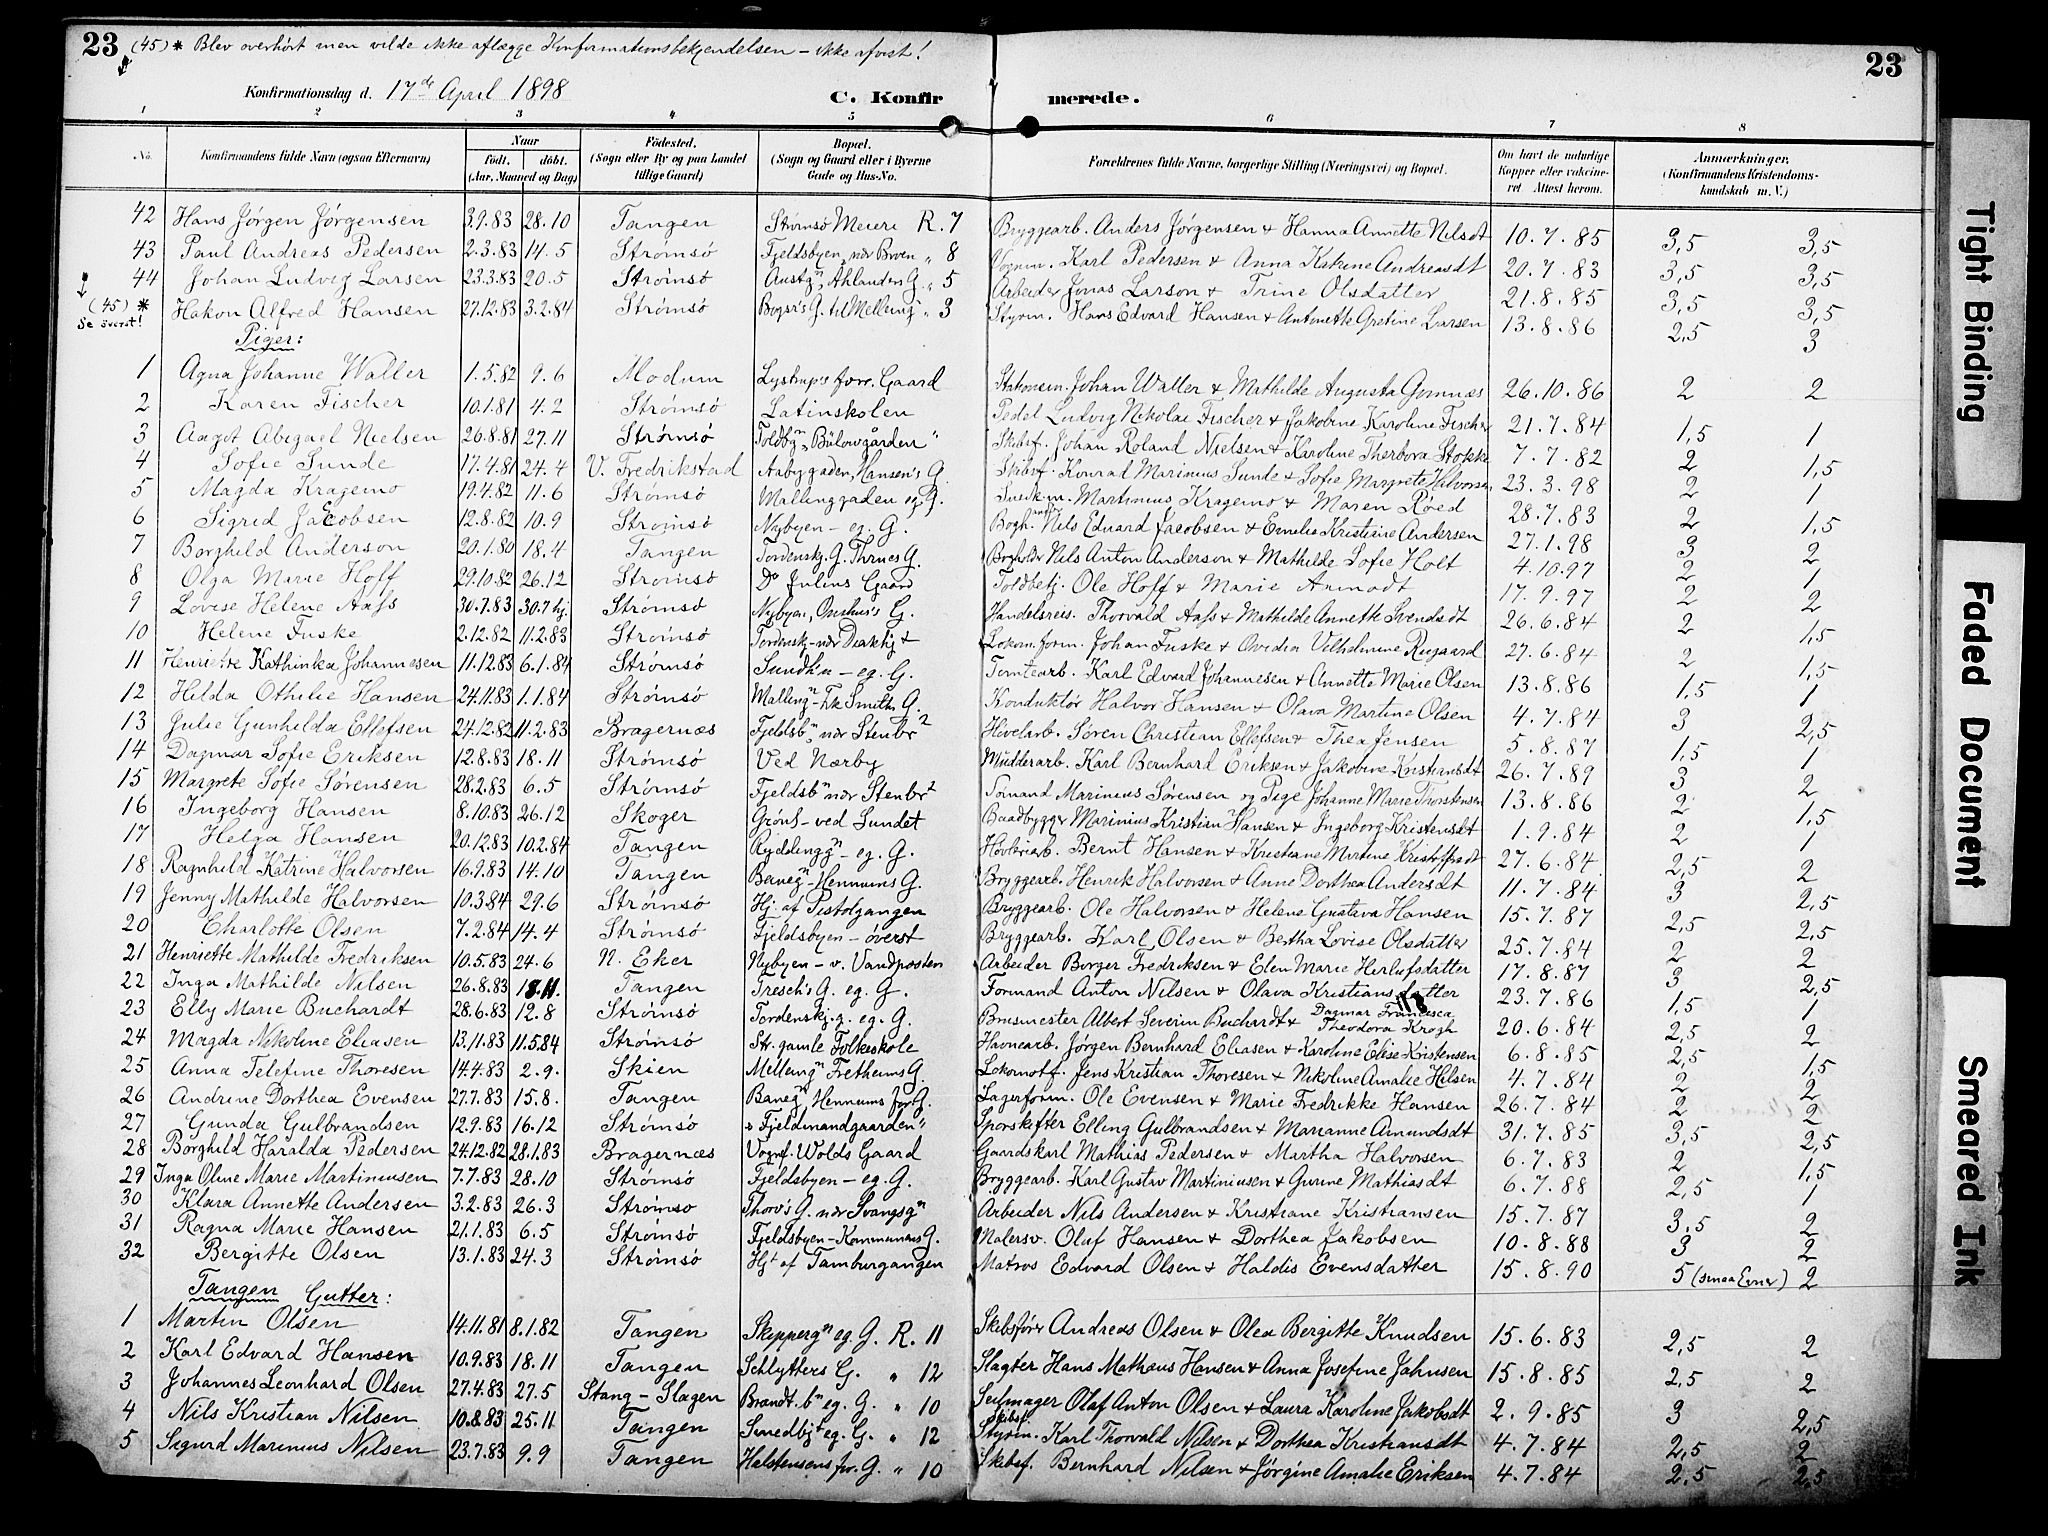 23 (45) * Blev overhørt men vilde ikke aflægge Konfirmationsbekjendelsen - ikke afvist! 23
Konfirmationsdag d. 17de April 1898 C. Konfir merede.
1 2 3 4 5 6 7 8
No. Konfirmandens fulde Navn (ogsaa Efternavn) Naar født. døbt. (Aar, Maaned og Dag) Fødested. (Sogn eller By og paa Landet tillige Gaard) Bopæl. (Sogn og Gaard eller i Byerne Gade og Hus-No. Forældrenes fulde Navne, borgerlige Stilling (Næringsvei) og Bopæl. Om havt de naturlige Kopper eller vaccineret. Attest herom. Anmærkninger. (Konfirmandens Kristendomskundskab m. V.)
42 Hans Jørgen Jørgensen 3.9.83 28.10 Tangen Strømsö Meieri R. 7 Bryggearb. Anders Jørgensen & Hanna Annette Nilsdt 10.7.85 3,5 3,5
43 Paul Andreas Pedersen 2.3.83 14.5 Strömsö Fjeldsbyen, nær Broen " 8 Vognm. Karl Pedersen & Anna Katrine Andreasdt 20.7.83 3,5 3,5
44 Johan Ludvig Larsen 23.3.83 20.5 Strömsö Austgn, Ahlanders G. " 5 Arbeider Jonas Larson & Trine Olsdatter 21.8.85 3,5 3,5
(45) * Se överst! Hakon Alfred Hansen 27.12.83 3.2.84 Strömsö G. til Melleng " 3 Styrm. Hans Edvard Hansen & Antonette Gretine Larsen 13.8.86 2,5 3
Piger:
1 Agna Johanne Waller 1.5.82 9.6 Modum Lystrup's forr. Gaard Stationsm. Johan Waller & Mathilde Augusta Gomnæs 26.10.86 2 2
2 Karen Fischer 10.1.81 4.2 Strømsø Latinskolen Pedel Ludvig Nikolai Fischer & Jakobine Karoline Fischer 21.7.84 1,5 1
3 Aagot Abigael Nielsen 26.8.81 27.11 Strømsö Toldbgn "Bülowgården" Skibsf. Johan Roland Nielsen & Karoline Therbora Stokke 7.7.82 2 1,5
4 Sofie Sunde 17.4.81 24.4 V. Fredrikstad Aabygaden, Hansen's G. Skibsf. Konrad Marinius Sunde & Sofie Margrete Halvorsen 23.3.98 2 1
5 Magda Kragemo 19.4.82 11.6 Strømsö Mallinggaden eg. G. Snedkm. Martinius Kragemo & Maren Røed 28.7.83 2 1,5
6 Sigrid Jacobsen 12.8.82 10.9 Strømsö Nybyen - eg. G. Bogh. Nils Edvard Jacobsen & Emelie Kristiane Andersen 27.1.98 3 2
7 Borghild Anderson 20.1.80 18.4 Tangen Tordenskj. G. Thrnes G. Bogholder Nils Anton Anderson & Mathilde Sofie Holt 4.10.97 2 1
8 Olga Marie Hoff 29.10.82 26.12 Strømsö Do Julius Gaard Toldbetj. Ole Hoff & Marie 17.9.97 2 2
9 Lovise Helene Aass 30.7.83 30.7 hj. Strømsö Nybyen, G. Handelsreis. Thorvald Aass & Mathilde Annette Svendsdt 26.6.84 2 1,5
10 Helene Fuske 2.12.82 11.2.83 Strømsö Tordensk - nær Lokom.form. Johan Fuske & Ovidia Vilhelmine Rugaard 27.6.84 2 1,5
11 Henriette Kathinka Johannesen 11.12.83 6.1.84 Strømsö - eg. G. Tomtearb. Karl Edvard Johannesen & Annette Marie Olsen 13.8.86 1,5 1
12 Hilda Othilie Hansen 24.11.83 1.1.84 Strømsö Malling n - Smiths G. Konduktör Halvor Hansen & Olava Martine Olsen 4.7.84 3 2,5
13 Julie Gunhilda Ellefsen 24.12.82 11.2.83 Bragernæs Fjeldsbn nær Stenbr 2 Høvelarb. Søren Christian Ellefsen & Thea Jensen 5.8.87 1,5 1
14 Dagmar Sofie Eriksen 12.8.83 18.11 Strømsö Ved Nærby Mudderarb. Karl Bernhard Eriksen & Jakobine Kristiansdt 26.7.89 3 2
15 Margrete Sofie Sørensen 28.2.83 6.5 Strømsö Fjeldsbn nær Stenbr 2 Sömand Marinius Sørensen og Pige Johanne Marie Thorstensen 13.8.86 2 1,5
16 Ingeborg Hansen 8.10.83 26.12 Skoger Grønl - ved Sundet Baadbygger Marinius Kristian Hansen & Ingeborg Kristensdt 1.9.84 2 1
17 Helga Hansen 20.12.83 10.2.84 Tangen Ryddinggn - eg. G. Høvleriarb. Bernt Hansen & Kristiane Martine Kristoffersdt 27.6.84 2,5 2
18 Ragnhild Katrine Halvorsen 16.9.83 14.10 Tangen Banegn - Hennums G. Bryggearb. Henrik Halvorsen & Anne Dorthea Andersdt 11.7.84 3 2,5
19 Jenny Mathilde Halvorsen 10.3.84 29.6 Strømsö Hj. af Pistolgangen Bryggearb. Ole Halvorsen & Helene Gustava Hansen 15.7.87 2,5 2,5
20 Charlotte Olsen 7.2.84 14.4 Strømsö Fjeldsbyen - överst Bryggearb. Karl Olsen & Bertha Lovise Olsdatter 25.7.84 2 2
21 Henriette Mathilde Fredriksen 10.5.83 24.6 N. Eker Nybyen - v. Vandposten Arbeider Borger Fredriksen & Elen Marie Herlufsdatter 17.8.87 3 2,5
22 Inga Mathilde Nilsen 26.8.83 18.11. Tangen Tresch's G. eg. G. Formand Anton Nilsen & Olava Kristiansdatter 23.7.86 1,5 1
23 Elly Marie Buchardt 28.6.83 12.8 Strømsö Tordenskj. g. eg. G. Brusmester Albert Severin Buchardt & Dagmar Francesca Theodora Krogh 20.6.84 2,5 2
24 Magda Nikoline Eliasen 13.11.83 11.5.84 Strømsö Str. gamle Folkeskole Havnearb. Jørgen Bernhard Eliasen & Karoline Elise Kristensen 6.8.85 2,5 1,5
25 Anna Telefine Thoresen 14.4.83 2.9. Skien Mellengn Fretheims G. Lokomotf. Jens Kristian Thoresen & Nikoline Amalie Nilsen 4.7.84 2 2
26 Andrine Dorthea Evensen 27.7.83 15.8. Tangen Banegn Hennums for. G. Lagerform. Ole Evensen & Marie Fredrikke Hansen 26.7.84 2 2
27 Gunda Gulbrandsen 12.9.83 16.12 Strømsö "Fjeldmandgaarden" Sporskifter Elling Gulbrandsen & Marianne Amundsdt 31.7.85 3,5 2,5
28 Borghild Haralda Pedersen 24.12.82 28.1.83 Bragernæs Vognf. Wolds Gaard Gaardskarl Mathias Pedersen & Martha Halvorsen 6.7.83 2 1,5
29 Inga Oline Marie Martiniusen 7.7.83 28.10 Strømsö Fjeldsbyen - eg. G. Bryggearb. Karl Gustav Martiniusen & Gurine Mathiasdt 6.7.88 2,5 1
30 Klara Annette Andersen 3.2.83 26.3 Strømsö Thovs G. nær Svangsgn Arbeider Nils Andersen & Kristiane Kristiansen 15.7.87 3,5 2
31 Ragna Marie Hansen 21.1.83 6.5 Strømsö Fjeldsbyen - Kommunens G. Malersv. Oluf Hansen & Dorthea Jakobsen 10.8.88 3 2
32 Bergitte Olsen 13.1.83 24.3 Strømsö Hjt af Tamburgangen Matros Edvard Olsen & Haldis Evensdatter 15.8.90 5 (smaa Evner) 2
Tangen Gutter:
1 Martin Olsen 14.11.81 8.1.82 Tangen Skippergn eg. G. R. 11 Skibsfører Andreas Olsen & Olea Bergitte Knudsen 15.6.83 2,5 2
2 Karl Edvard Hansen 10.9.83 18.11 Tangen Schlytters G. " 12 Slagter Hans Mathæus Hansen & Anna Josefine Jahnsen 15.8.85 2,5 2
3 Johannes Leonhard Olsen 27.4.83 27.5 Stang - Slagen Brandt. bn eg. G. " 10 Seilmager Olaf Anton Olsen & Laura Karoline Jakobsdt 2.9.85 3 2,5
4 Nils Kristian Nilsen 10.8.83 25.11 Tangen Smedbjt eg. G. " 12 Skibsf. Styrm. Karl Thorvald Nilsen & Dorthea Kristiansdt 4.7.84 2,5 2
5 Sigurd Marinius Nilsen 23.7.83 9.9 Tangen Halstensens for. G. " 10 Skibsf. Bernhard Nilsen & Jørgine Amalie Eriksen 4.7.84 2,5 2,5
Tight Binding
Faded Document
Smeared Ink